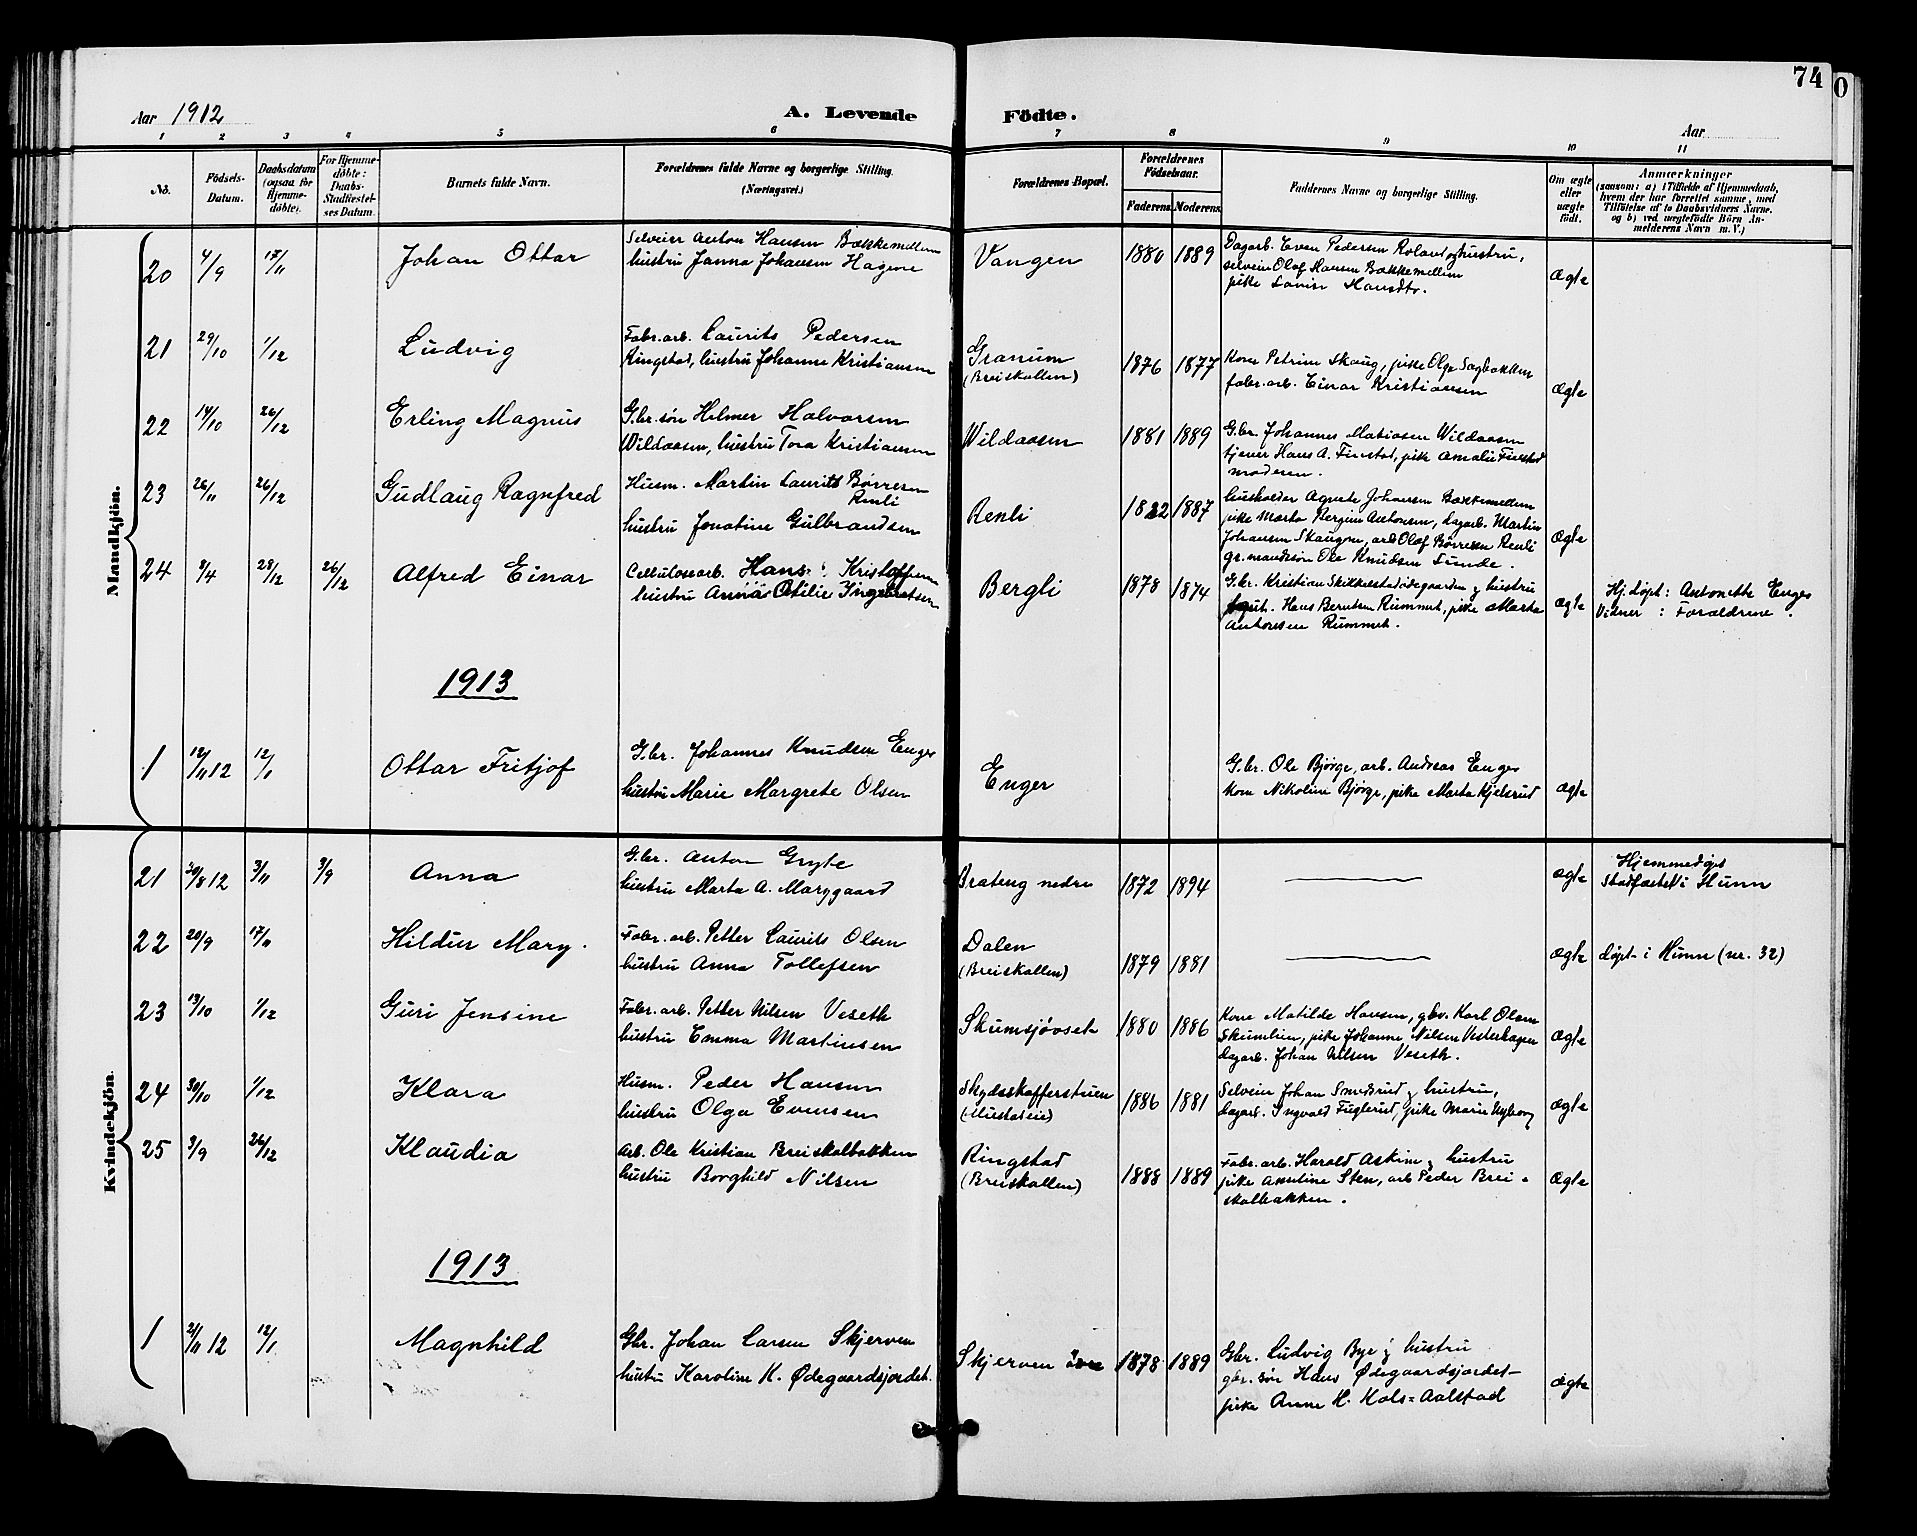 74
0
Aar 1912
A. Levende Födte.
Aar
1 2 3 4 5 6 7 8 9 10 11
No.
Födsels-Datum.
Daabsdatum (ogsaa for Hjemmedöbte).
For Hjemmedöbte: Daabs-Stadfæstelses Datum.
Barnets fulde Navn.
Forældrenes fulde Navne og borgerlige Stilling. (Næringsvei.)
Forældrenes Bopæl.
Forældrenes Födselsaar.
Faderens. Moderens.
Faddernes Navne og borgerlige Stilling.
Om ægte eller uægte födt.
Anmærkninger
(saasom: a) i Tilfælde af Hjemmedaab, hvem der har forrettet samme, med Tilföielse af to Daabsvidners Navne. og b) ved uægtefödte Börn Anmelderens Navn m. V.)
Mandkjön.
20 4/9 17/11 Johan Ottar
Selveier Anton Hansen Bækkemellem
hustru Janna Johansen Hagene
Vangen 1880 1889
Dagarb. Even Pedersen Roland og hustru,
selveier Olaf Hansen Bækkemellem
pike Lovise Hansdtr.
Ægte
21 29/10 1/12 Ludvig
Fabr.arb. Laurits Pedersen
Ringstad, hustru Johanne Kristiansen
Granum (Breiskallen) 1876 1877
Kone Petrine Skaug, pike Olga Sagbakken
fabr.arb. Einar Kristiansen
Ægte
22 14/10 26/12 Erling Magnus
G.br.søn Helmer Halvorsen
Wildaasen, hustru Tora Kristiansen
Wildaasen 1881 1889
G.br. Johannes Matiasen Wildaasen
tjener Hans A. Finstad, pike Amalie Finstad
moderen.
23 26/11 26/12 Gudlaug Ragnfred
Husm. Martin Laurits Børresen
Renli
hustru Jonatine Gulbrandsen
Renli 1882 1887
husholder Agnete Johansen Bækkemellem
pike Marta Bergine Antonsen, dagarb. Martin
Johansen Skaugen, arb Olaf Børresen Renli
gr.mandssøn Ole Knudsen Sunde.
Ægte
24 8/4 28/12 26/12 Alfred Einar
Cellulosearb. Hans Kristoffersen
hustru Anna Otilie Ingebretsen
Bergli 1878 1874
G.br. Kristian Skikkelstadødegaarden og hustru
Hans Berntsen Rummet, pike Marta
Antonsen Rummet.
Ægte
Hj.døpt: Antonette Enger
Vidner: Forældrene.
1913
1 12/11 12 12/1 Ottar Fritjof
G.br. Johannes Knudsen Enger
hustru Marie Margrete Olsen
Enger
G.br. Ole Bjørge, arb. Andreas Enger
kone Nikoline Bjørge, pike Marta Kjelsrud
Ægte
Kvindekjön.
21 20/8 12 3/11 3/9 Anna
G.br. Anton Gryte
hustru Marta A. Marygaard
Brateng nedre 1872 1894
ægte
Hjemmedøpt
Stadfæstet i Hunn
22 20/9 17/11 Hildur Mary.
Fabr.arb. Petter Laurits Olsen
hustru Anna Tollefsen
Dalen (Breiskallen) 1879 1881
Ægte
døpt i Hunn (nr. 32)
23 13/10 1/12 Guri Jensine
Fabr.arb. Petter Nilsen Veseth
hustru Emma Martinsen
Skumsjøvset 1880 1886
Kone Matilde Hansen, gbr. Karl Olsen
Skumlien, pike Johanne Nilsen Vesterhagen
dagarb. Johan Nilsen Veseth.
Ægte
24 30/10 1/12 Klara
Husm. Peder Hansen
hustru Olga Evensen
Skydsskafferstuen (Hustaseie) 1886 1881
Selveier Johan Smedsrud og hustru,
dagarb. Ingvald Fuglerud, pike Marie Nyborg
Ægte
25 3/9 26/12 Klaudia
Arb. Ole Kristian Breiskalbakken
hustru Borghild Nilsen
Ringstad (Breiskallen) 1888 1889
Fabr.arb. Harald Askim og hustru
pike Anteline Sten, arb Peder Brei-
skalbakken.
Ægte
1913
1 21/11 12 12/1 Magnhild
Gbr. Johan Larsen Skjerven
hustru Karoline H. Ødegaardsjordet.
Skjerven øvre 1878 1889
Gbr. Ludvig Bye og hustru
gbr. søn Hans Ødegaardsjordet
pike Anne H. Hols=Aalstad
ægte